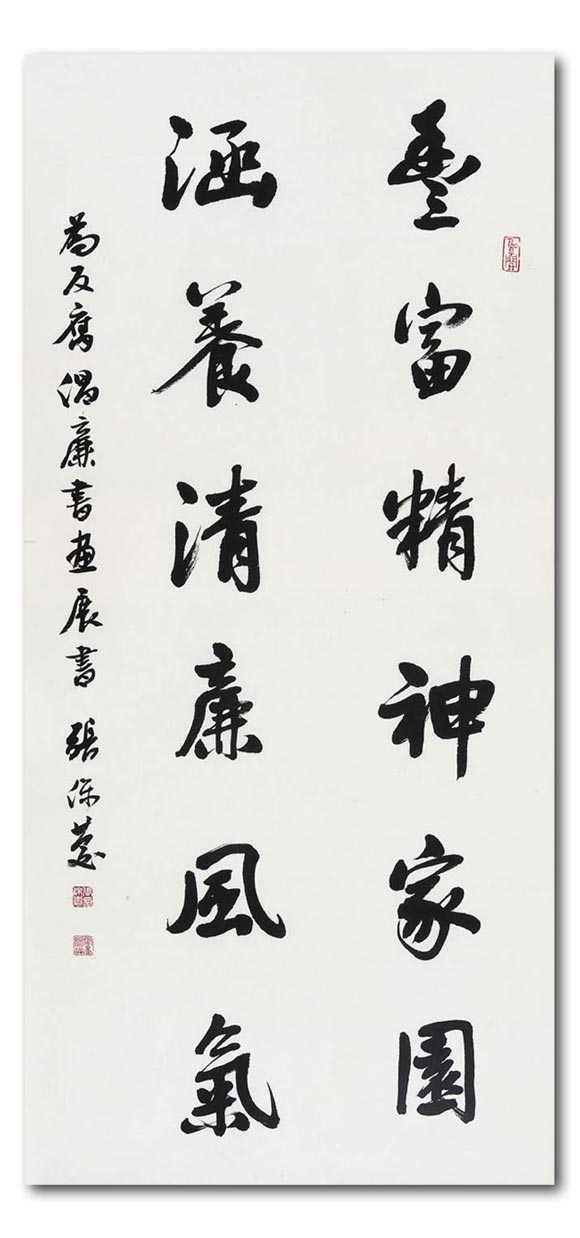 豐富精神家園
涵養清廉風氣
為反腐倡廉書畫展書 張保慶